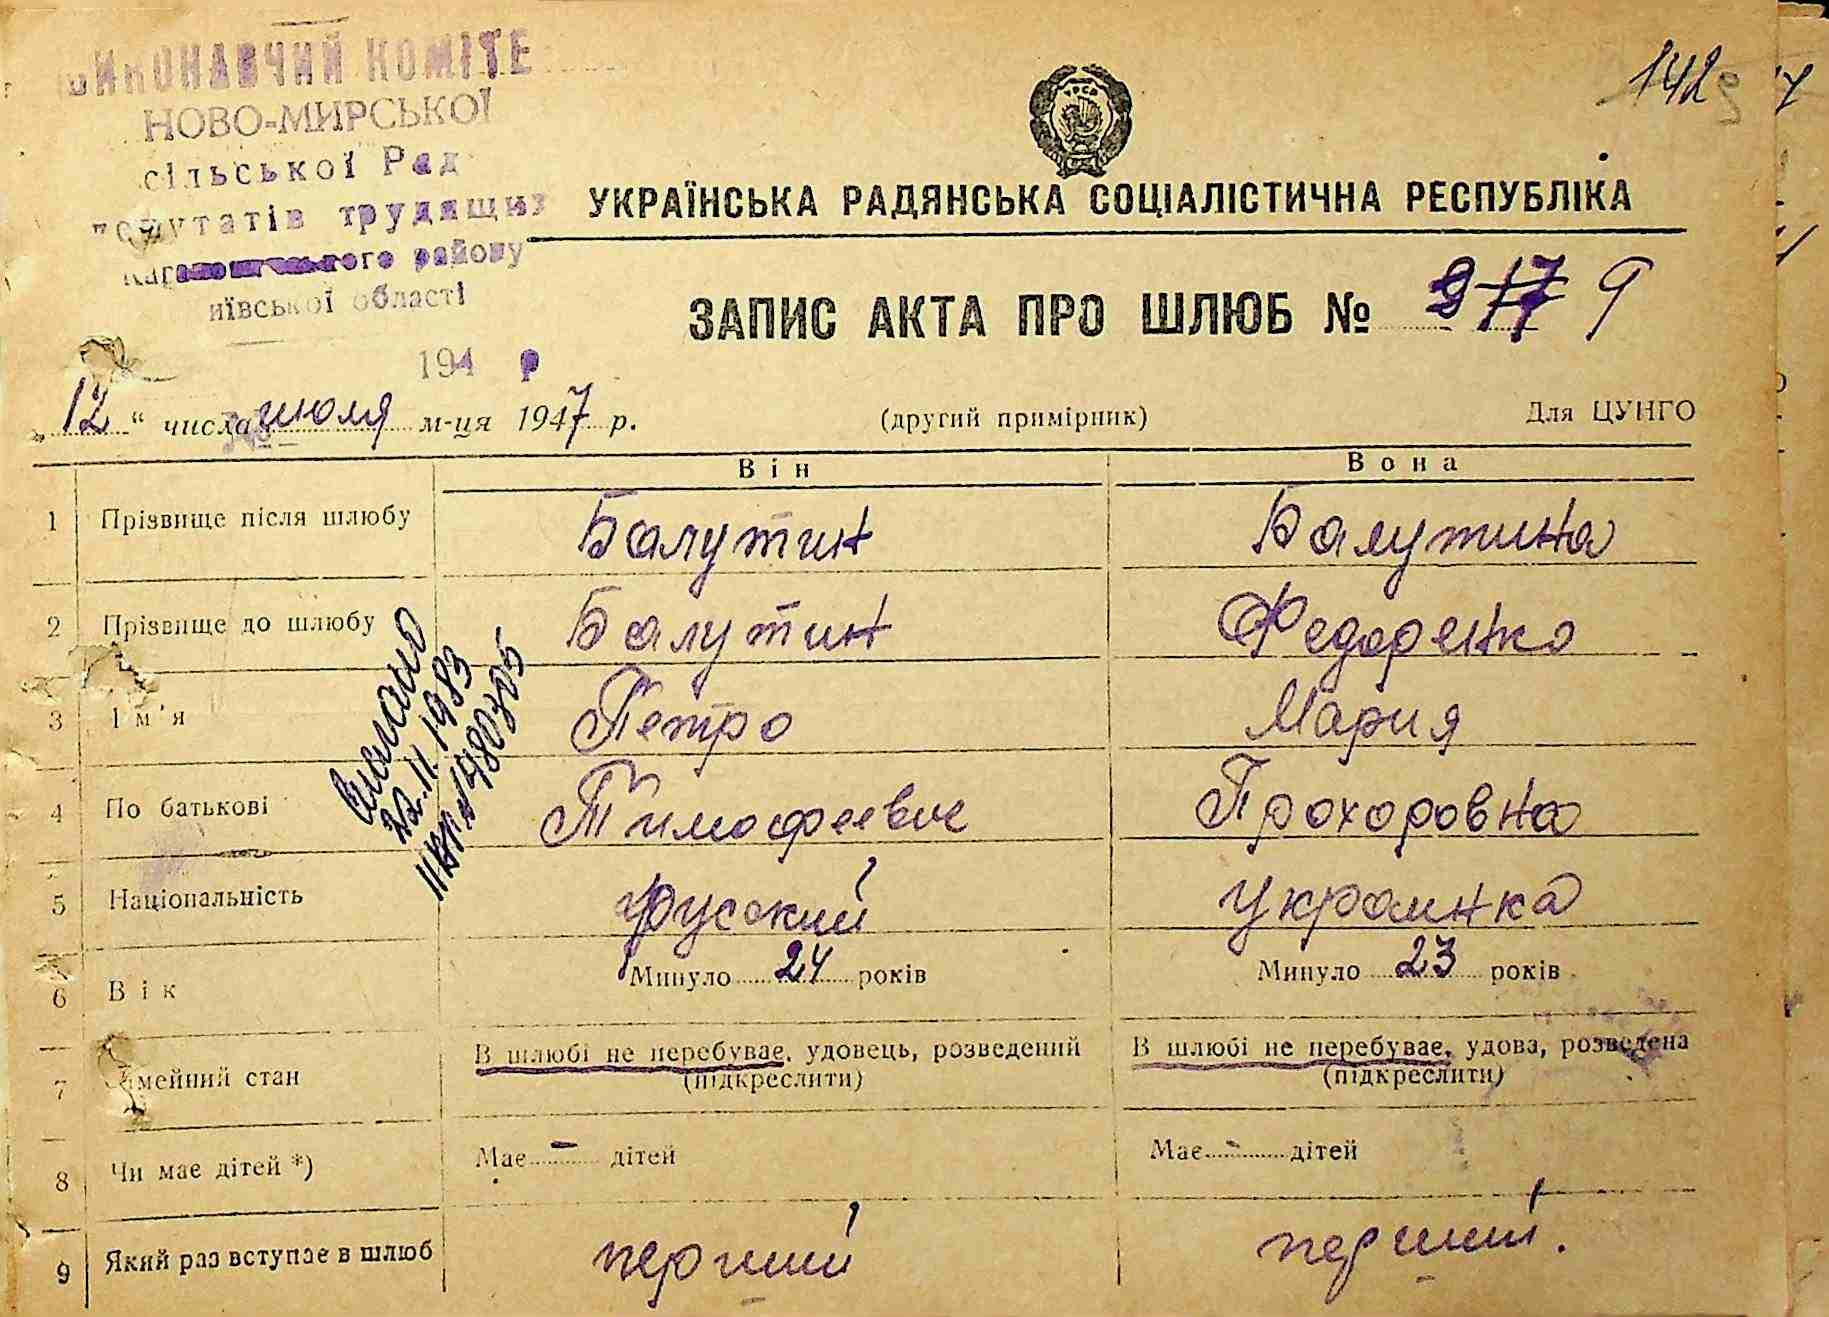 ВИКОНАВЧИЙ КОМІТЕ
НОВО-МИРСЬКОЇ
сільської Рад
депутатів трудящих
району
ївської області
194 р
142
УРСР
УКРАЇНСЬКА РАДЯНСЬКА СОЦІАЛІСТИЧНА РЕСПУБЛІКА
ЗАПИС АКТА ПРО ШЛЮБ № 9
„12“ числа июля м-ця 1947 р. (другий примірник) Для ЦУНГО
Він Вона
1 Прізвище після шлюбу Балутин Балутина
2 Прізвище до шлюбу Балутин Федоренко
3 Ім'я Петро Мария
4 По батькові Тимофеевич Прохоровна
5 Національність русский украинка
6 Вік Минуло 24 років Минуло 23 років
7 імейний стан В шлюбі не перебуває, удовець, розведений В шлюбі не перебуває, удова, розведена
(підкреслити) (підкреслити)
8 Чи має дітей *) Має — дітей Має - дітей
9 Який раз вступає в шлюб перший перший.
22.11.1983